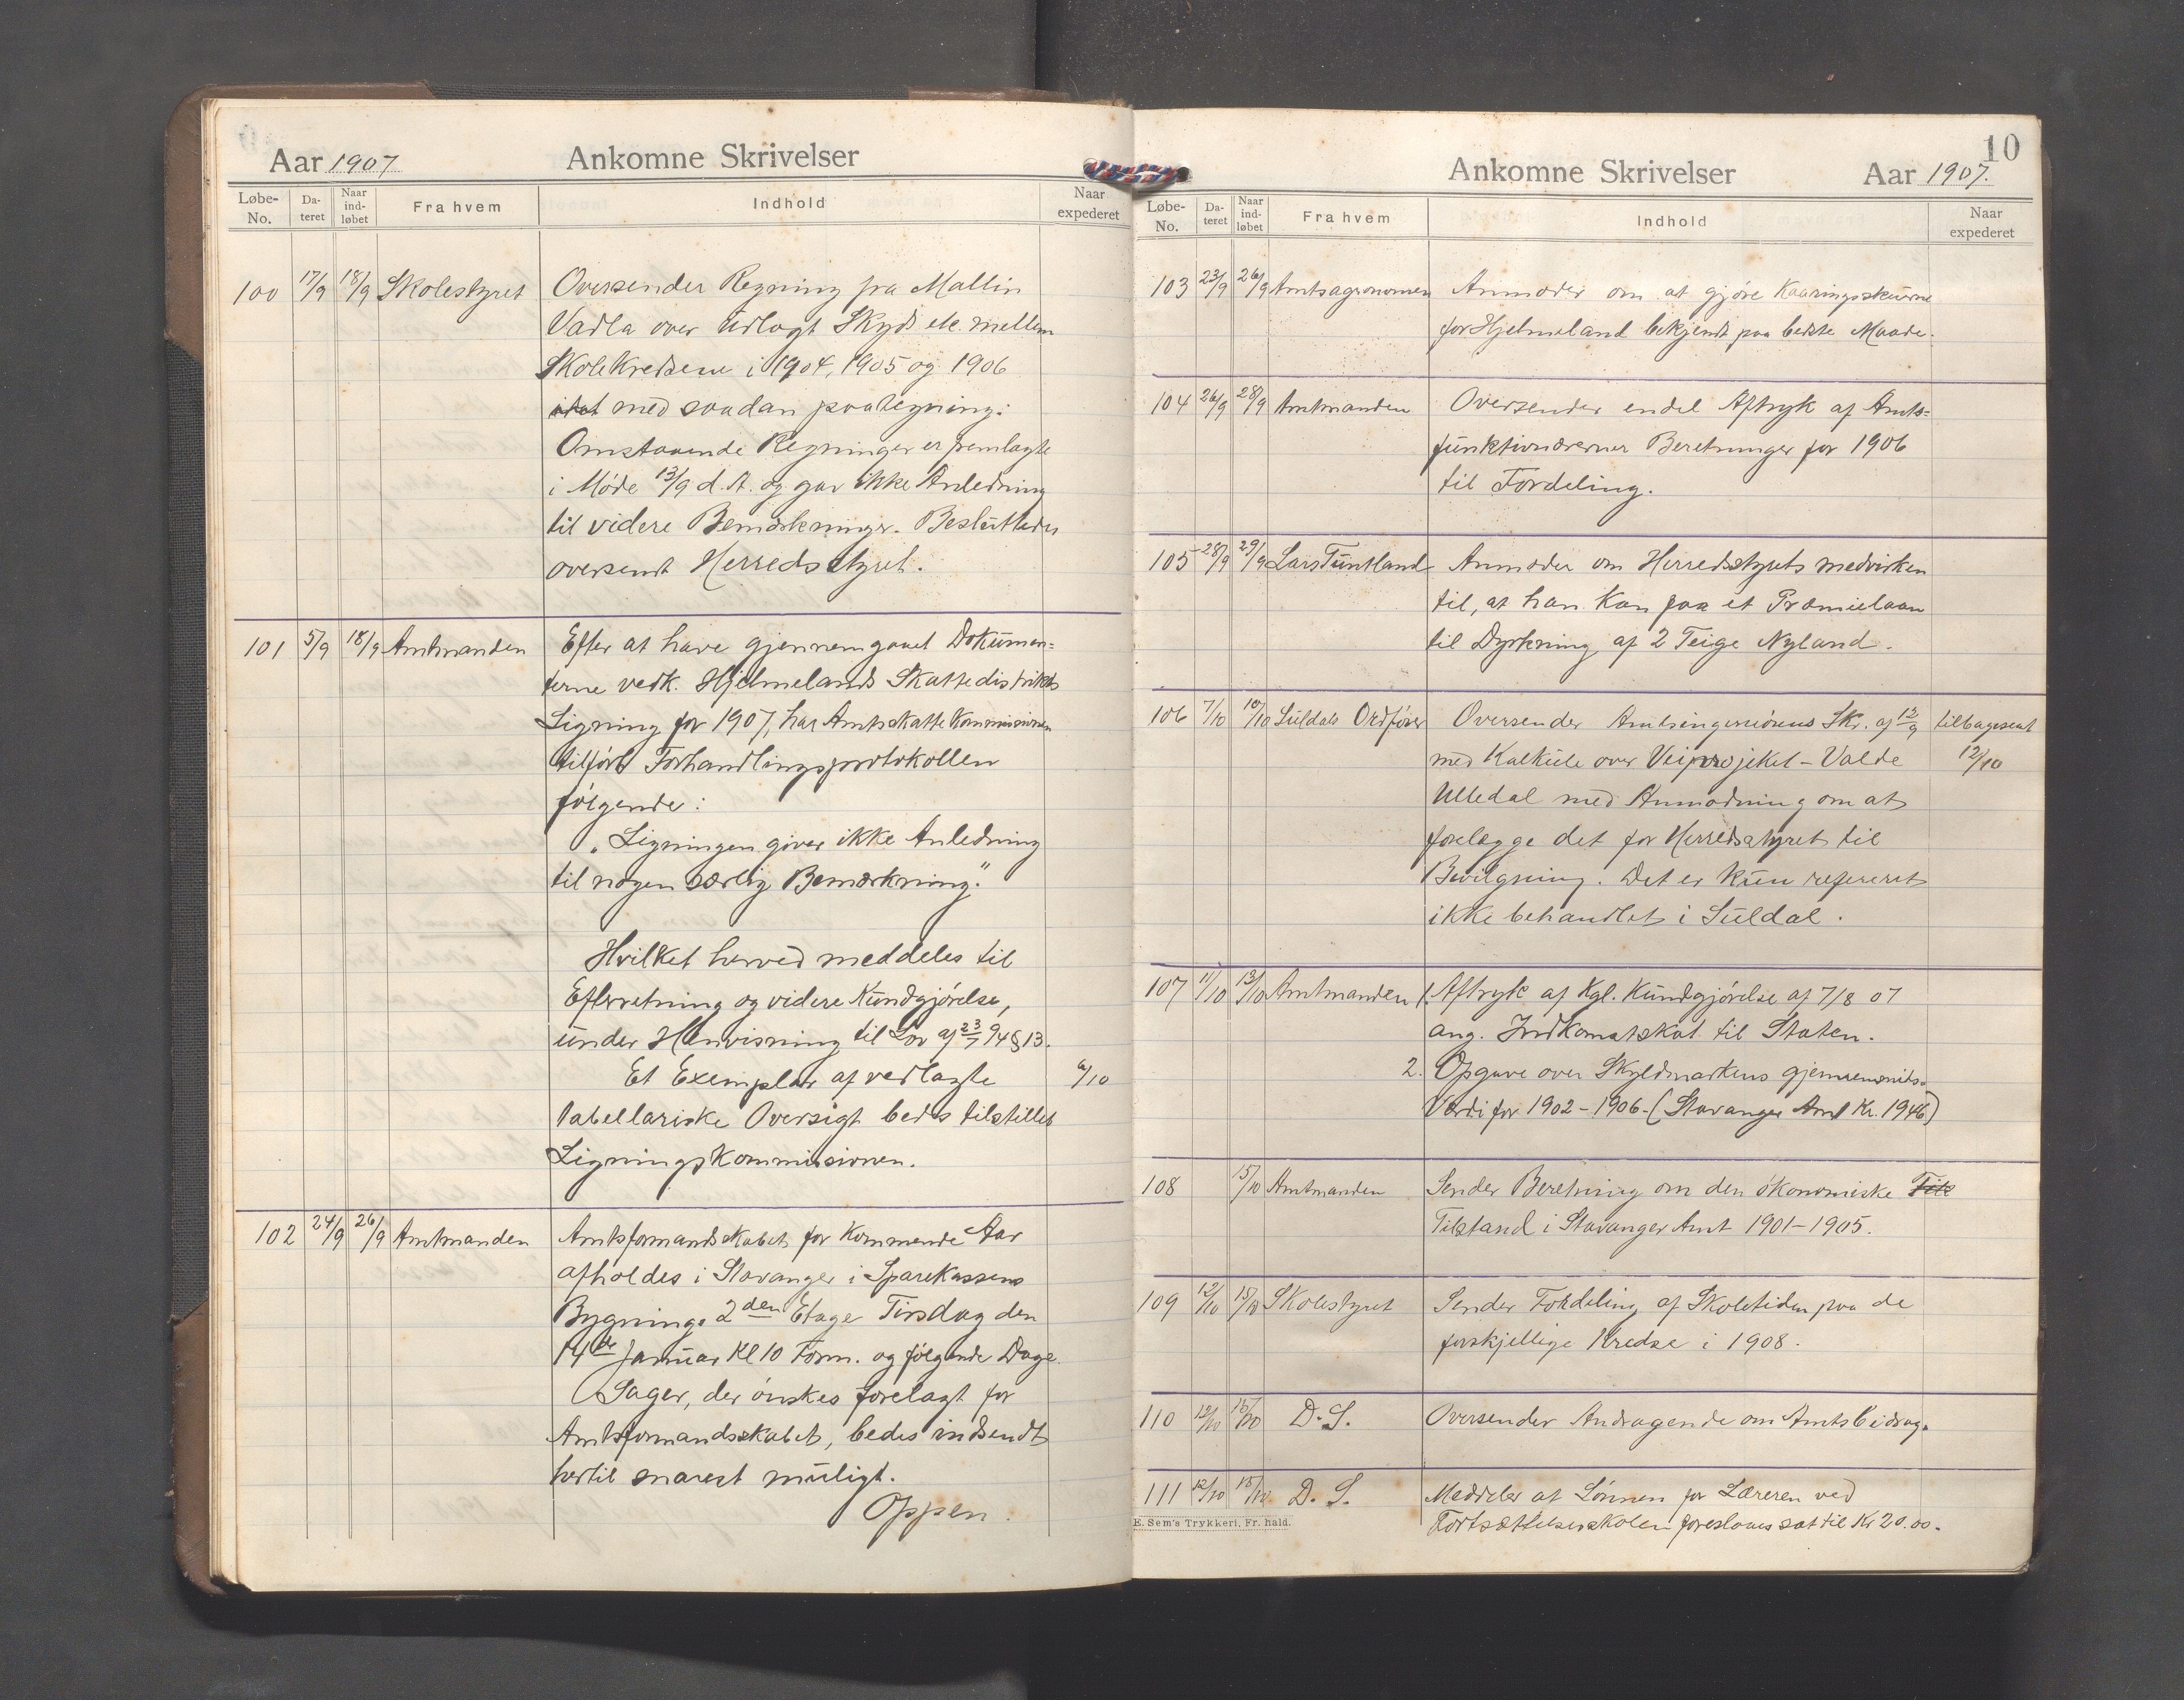 Aar 1907
Ankomne Skrivelser
Løbe-No.
Dateret
Naar indløbet
Fra hvem
Indhold
Naar expederet
100 17/9 18/9 Skolestyret Oversender Regning fra Mallin
Vadla over udlagt Skyds etc. mellem
Skolekredsene i 1904, 1905 og 1906
med saadan paategning:
Omstaaende Regninger er fremlagte
i Møde 13/9 d. A. og gav ikke Anledning
til videre Bemærkninger. Besluttedes
oversendt Herredsstyret.
101 5/9 18/9 Amtmanden Efter at have gjennemgaaet Dokumen-
terne vedk. Hjelmelands Skattedistrikts
Ligning for 1907, har Amtsskattekommissionen
tilført Forhandlingsprotokollen
følgende:
„Ligningen giver ikke Anledning
til nogen særlig Bemærkning."
Hvilket herved meddeles til
Efterretning og videre Kundgjørelse,
under Henvisning til Lov af 23/7 94 § 13.
Et Exemplar af vedlagte 6/10
tabellariske Oversigt bedes tilstillet
Ligningskommissionen.
102 24/9 26/9 Amtmanden Amtsformandskabet for kommende Aar
afholdes i Stavanger i Sparekassens
Bygnings 2den Etage Tirsdag den
14de Januar Kl 10 Form. og følgende Dage.
Sager, der ønskes forelagt for
Amtsformandsskabet, bedes indsendt
hertil snarest muligt.
Oppen.
10
Ankomne Skrivelser
Aar 1907.
Løbe-No.
Dateret
Naar indløbet
Fra hvem
Indhold
Naar expederet
103 23/9 26/9 Amtsagronomen Anmoder om at gjøre Kaaringsskuerne
for Hjelmeland bekjendt paa bedste Maade.
104 26/9 28/9 Amtmanden Oversender endel Aftryk af Amts-
funktionærernes Beretninger for 1906
til Fordeling.
105 28/9 29/9 Lars Tuntland Anmoder om Herredsstyrets medvirken
til, at han kan faa et Præmielaan
til Dyrkning af 2 Teige Nyland.
106 7/10 10/10 Suldals Ordfører Oversender Amtsingeniørens Skr. af 12/9 tilbagesent
med Kalkule over Veiprojektet - Valde 12/10
Ulledal med Anmodning om at
forelægge det for Herredsstyret til
Bevilgning. Det er kun refereret
ikke behandlet i Suldal.
107 11/10 13/10 Amtmanden 1. Aftryk af Kgl. Kundgjørelse af 7/8 07
ang. Indkomstskat til Staten.
2. Opgave over Skyldmarkens gjennemsnits-
Værdi for 1902-1906. (Stavanger Amt Kr. 1946)
108 15/10 Amtmanden Sender Beretning om den økonomiske Tils
Tilstand i Stavanger Amt 1901-1905.
109 12/10 15/10 Skolestyret Sender Fordeling af Skoletiden paa de
forskjellige Kredse i 1908.
110 12/10 15/10 D. S. Oversender Andragende om Amtsbidrag.
111 12/10 15/10 D. S. Meddeler at Lønnen for Læreren ved
Fortsættelsesskolen foreslaaes sat til Kr 20.00.
E. Sem's Trykkeri, Fr. hald.